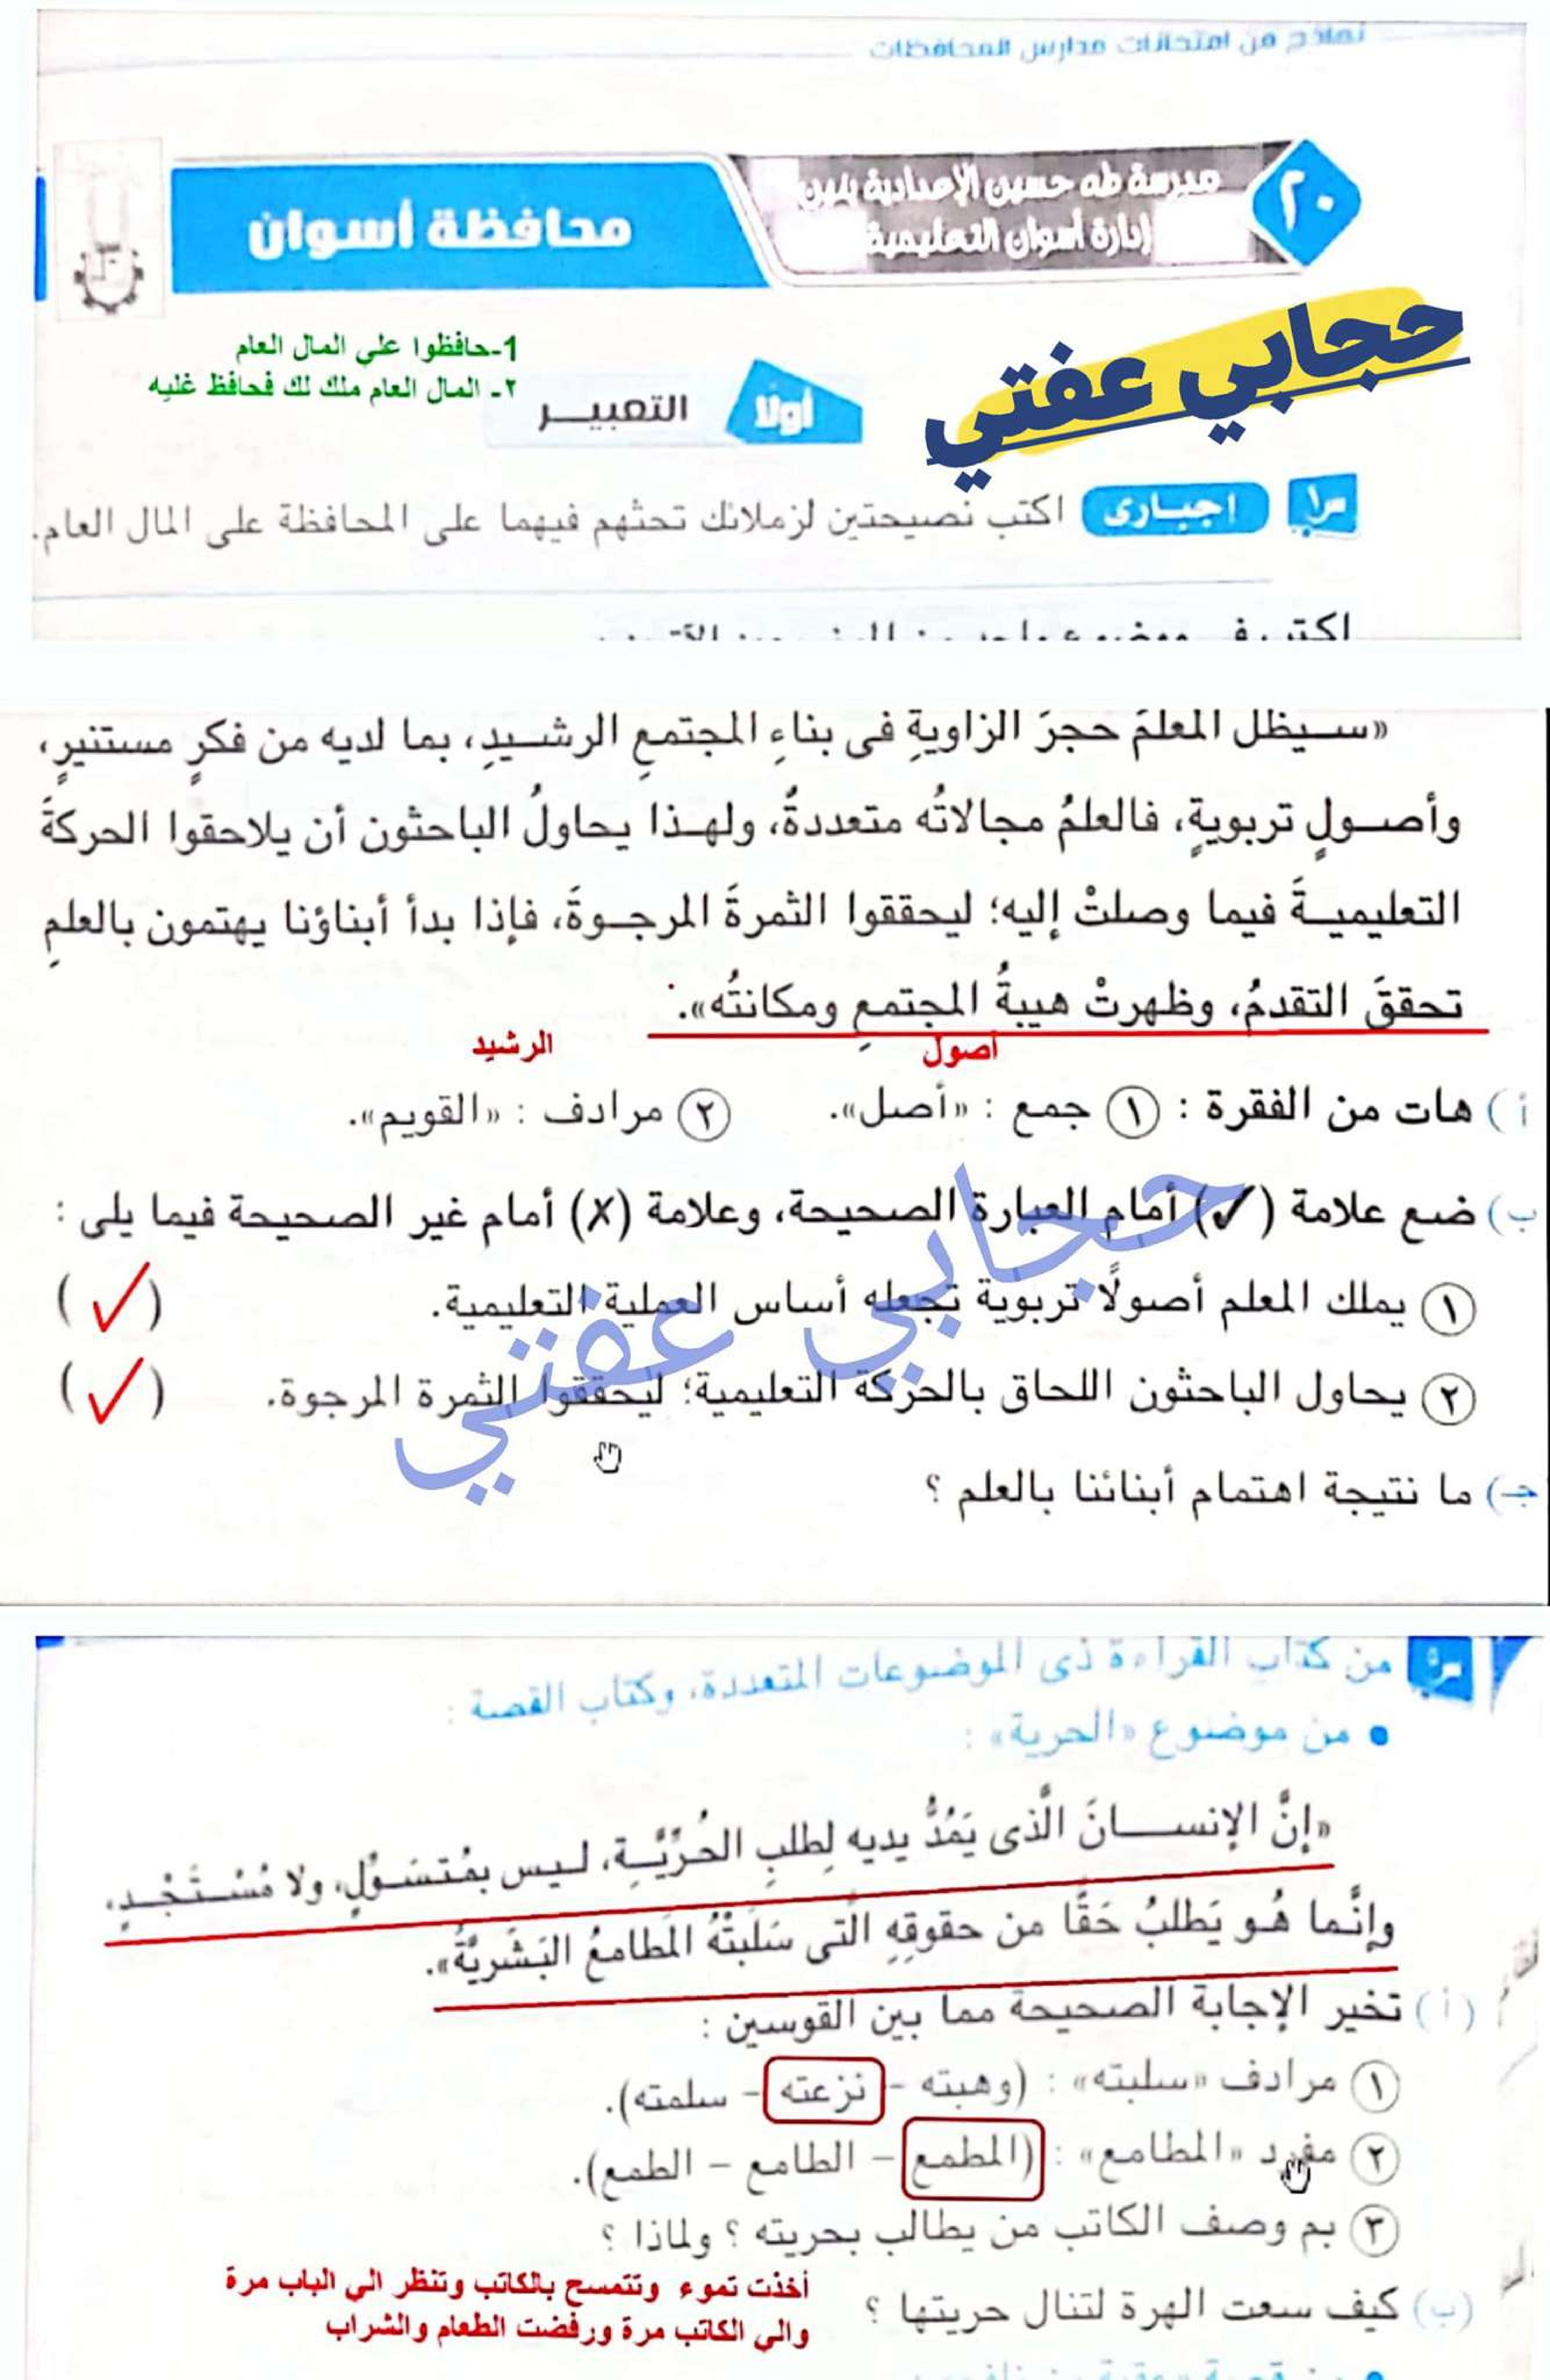 نماذج من امتحانات مدارس المحافظات
٢٠
مدرسة طه حسين الإعدادية بنين
إدارة أسوان التعليمية
محافظة أسوان
حجابي عفتي
1-حافظوا علي المال العام
٢- المال العام ملك لك فحافظ غليه
أولًا
التعبيـــر
س١ اجبـارى اكتب نصيحتين لزملائك تحثهم فيهما على المحافظة على المال العام.
«سـيظل المعلمَ حجرَ الزاويةِ فى بناءِ المجتمعِ الرشـيدِ، بما لديه من فكرٍ مستنيرٍ،
وأصـولٍ تربويةٍ، فالعلمُ مجالاتُه متعددةُ، ولهـذا يحاولُ الباحثون أن يلاحقوا الحركةَ
التعليميـةَ فيما وصلتْ إليه؛ ليحققوا الثمرةَ المرجـوةَ، فإذا بدأ أبناؤنا يهتمون بالعلمِ
تحققَ التقدمُ، وظهرتْ هيبةُ المجتمعِ ومكانتُه».
أصول
الرشيد
أ ) هات من الفقرة : ١ جمع : «أصل». ٢ مرادف : «القويم».
ب) ضع علامة (✓) أمام العبارة الصحيحة، وعلامة (✗) أمام غير الصحيحة فيما يلى :
١ يملك المعلم أصولًا تربوية تجعله أساس العملية التعليمية. (✓)
٢ يحاول الباحثون اللحاق بالحركة التعليمية؛ ليحققوا الثمرة المرجوة. (✓)
حجابي عفتي
جـ) ما نتيجة اهتمام أبنائنا بالعلم ؟
س٥ من كتاب القراءة ذى الموضوعات المتعددة، وكتاب القصة :
• من موضوع «الحرية» :
«إنَّ الإنســـانَ الَّذى يَمُدُّ يديه لِطلبِ الحُرِّيَّـةِ، ليس بمُتسَـوِّلٍ، ولا مُسْـتَجْـدٍ،
وإنَّما هُـو يَطلبُ حَقًّا من حقوقِهِ الَّتى سَلَبَتْهُ المَطامعُ البَشَريَّةُ».
(أ) تخير الإجابة الصحيحة مما بين القوسين :
١ مرادف «سلبته» : (وهبته - نزعته - سلمته).
٢ مفرد «المطامع» : (المطمع – الطامع – الطمع).
٣ بم وصف الكاتب من يطالب بحريته ؟ ولماذا ؟
(ب) كيف سعت الهرة لتنال حريتها ؟
أخذت تموء وتتمسح بالكاتب وتنظر الي الباب مرة
والي الكاتب مرة ورفضت الطعام والشراب